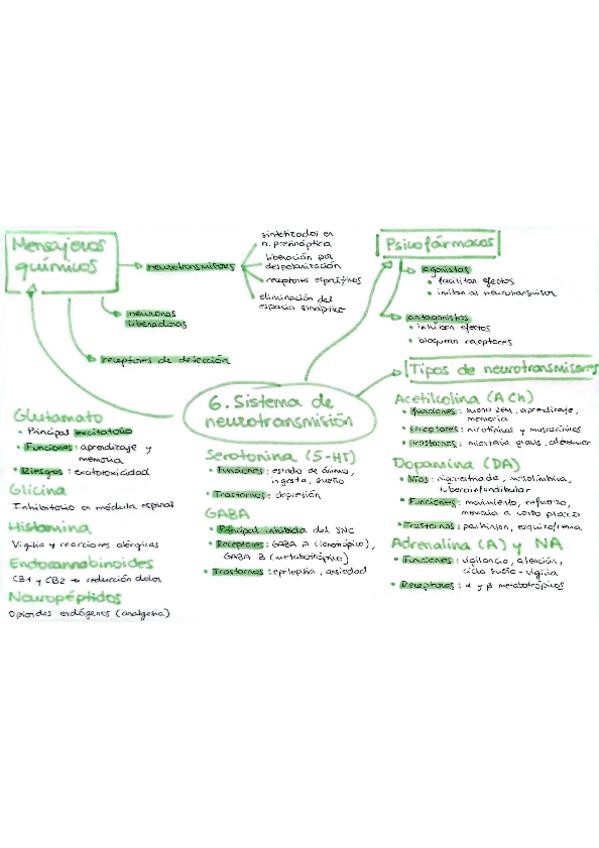 Mensajeros
químicos
neurotransmisores
sintetizados en
n. presináptica
liberación por
despolarización
receptores específicos
eliminación del
espacio sináptico
neuronas
liberadoras
receptores de detección
Psicofármacos
agonistas
• facilitan efectos
• imitan al neurotransmisor
antagonistas
• inhiben efectos
• bloquean receptores
6. Sistema de
neurotransmisión
Tipos de neurotransmisores
Acetilcolina (ACh)
• Funciones: sueño REM, aprendizaje,
memoria
• Receptores: nicotínicos y muscarínicos
• Trastornos: miastenia gravis, alzheimer
Dopamina (DA)
• Vías: nigroestriada, mesolímbica,
tuberoinfundibular
• Funciones: movimiento, refuerzo,
memoria a corto plazo
• Trastornos: parkinson, esquizofrenia
Adrenalina (A) y NA
• Funciones: vigilancia, atención,
ciclo sueño-vigilia
• Receptores: α y β metabotrópicos
Serotonina (5-HT)
• Funciones: estado de ánimo,
ingesta, sueño
• Trastornos: depresión
GABA
• Principal inhibida del SNC
• Receptores: GABA A (ionotrópico),
GABA B (metabotrópico)
• Trastornos: epilepsia, ansiedad
Glutamato
• Principal excitatorio
• Funciones: aprendizaje y
memoria
• Riesgos: excitotoxicidad
Glicina
Inhibitorio en médula espinal
Histamina
Vigilia y reacciones alérgicas
Endocannabinoides
CB1 y CB2 → reducción dolor
Neuropéptidos
Opioides endógenos (analgesia)